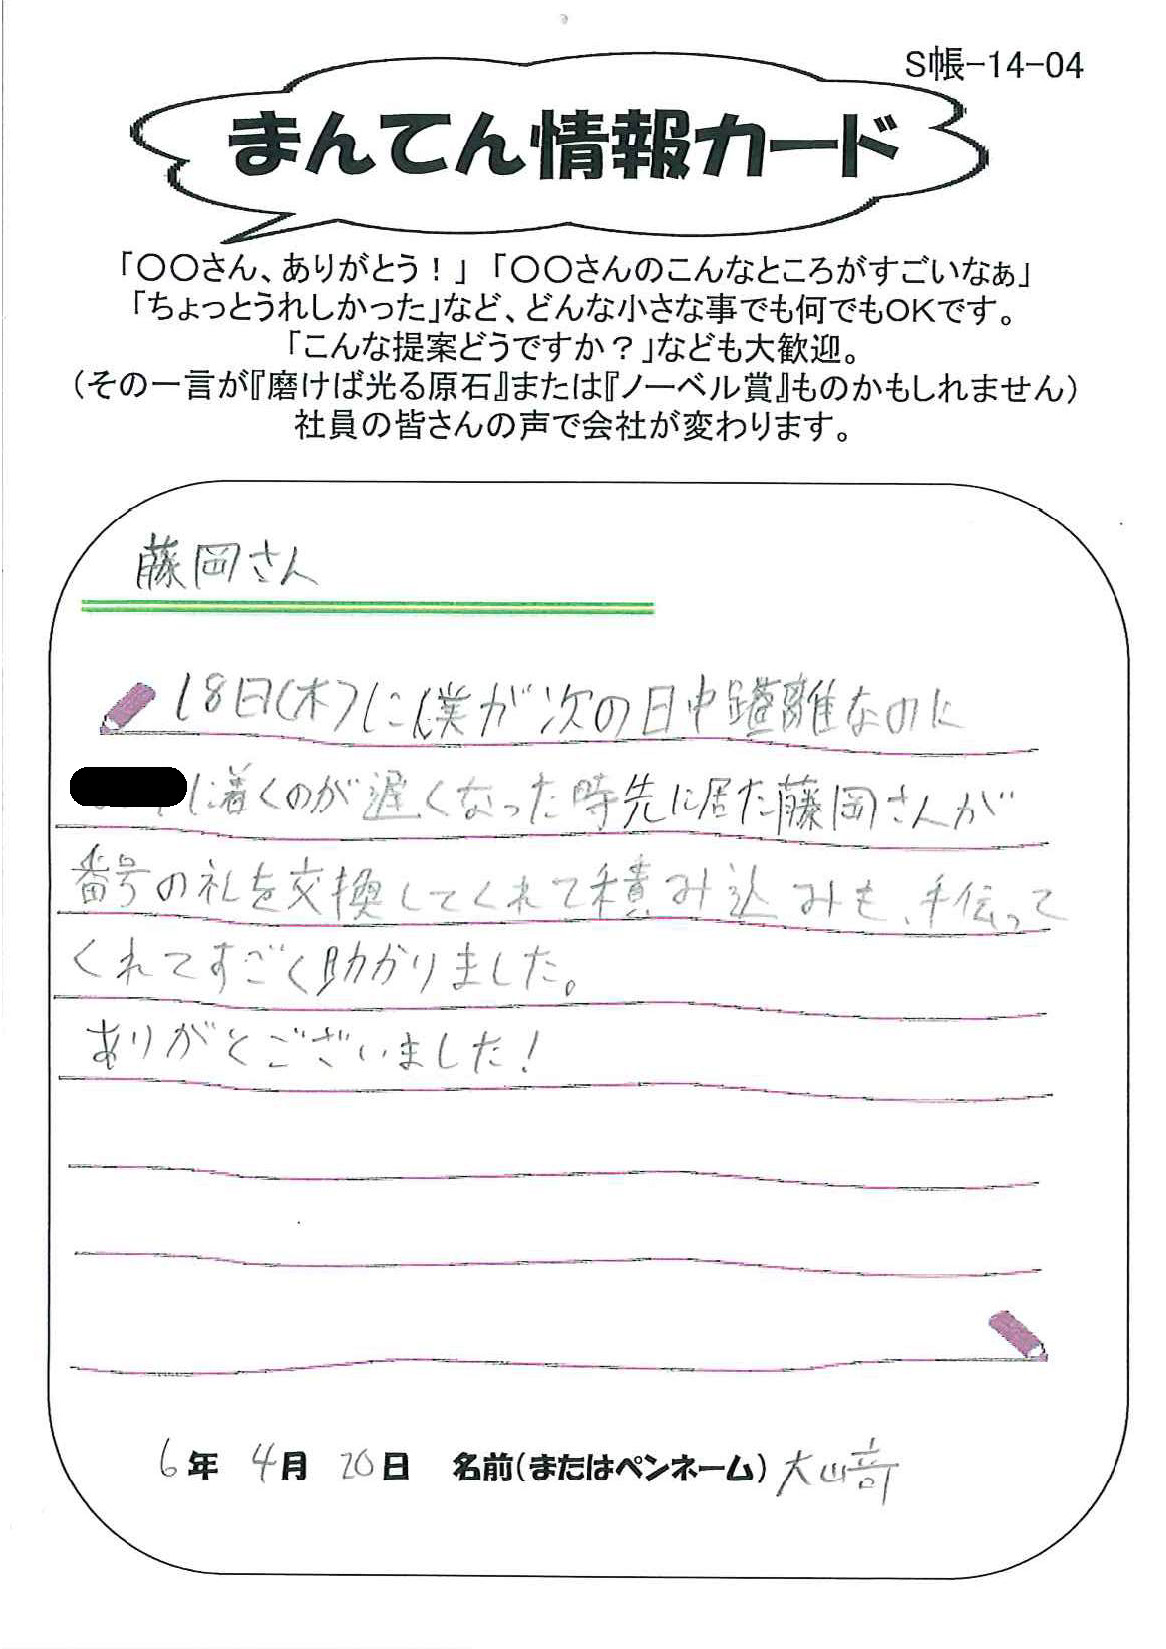 S帳-14-04
まんてん情報カード
「〇〇さん、ありがとう！」「〇〇さんのこんなところがすごいなぁ」
「ちょっとうれしかった」など、どんな小さな事でも何でもOKです。
「こんな提案どうですか？」なども大歓迎。
（その一言が『磨けば光る原石』または『ノーベル賞』ものかもしれません）
社員の皆さんの声で会社が変わります。
藤岡さん
18日(木)に僕が次の日中距離なのに
に着くのが遅くなった時先に居た藤岡さんが
番号の札を交換してくれて積み込みも、手伝って
くれてすごく助かりました。
ありがとございました！
6年 4月 20日 名前(またはペンネーム) 大崎